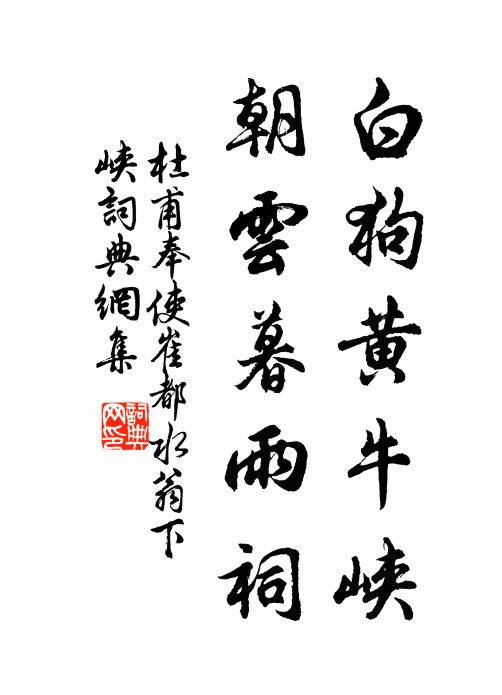 白狗黄牛峡
朝雲暮雨祠
杜甫奉使崔都水翁下
峡詞典網集
詞典网印